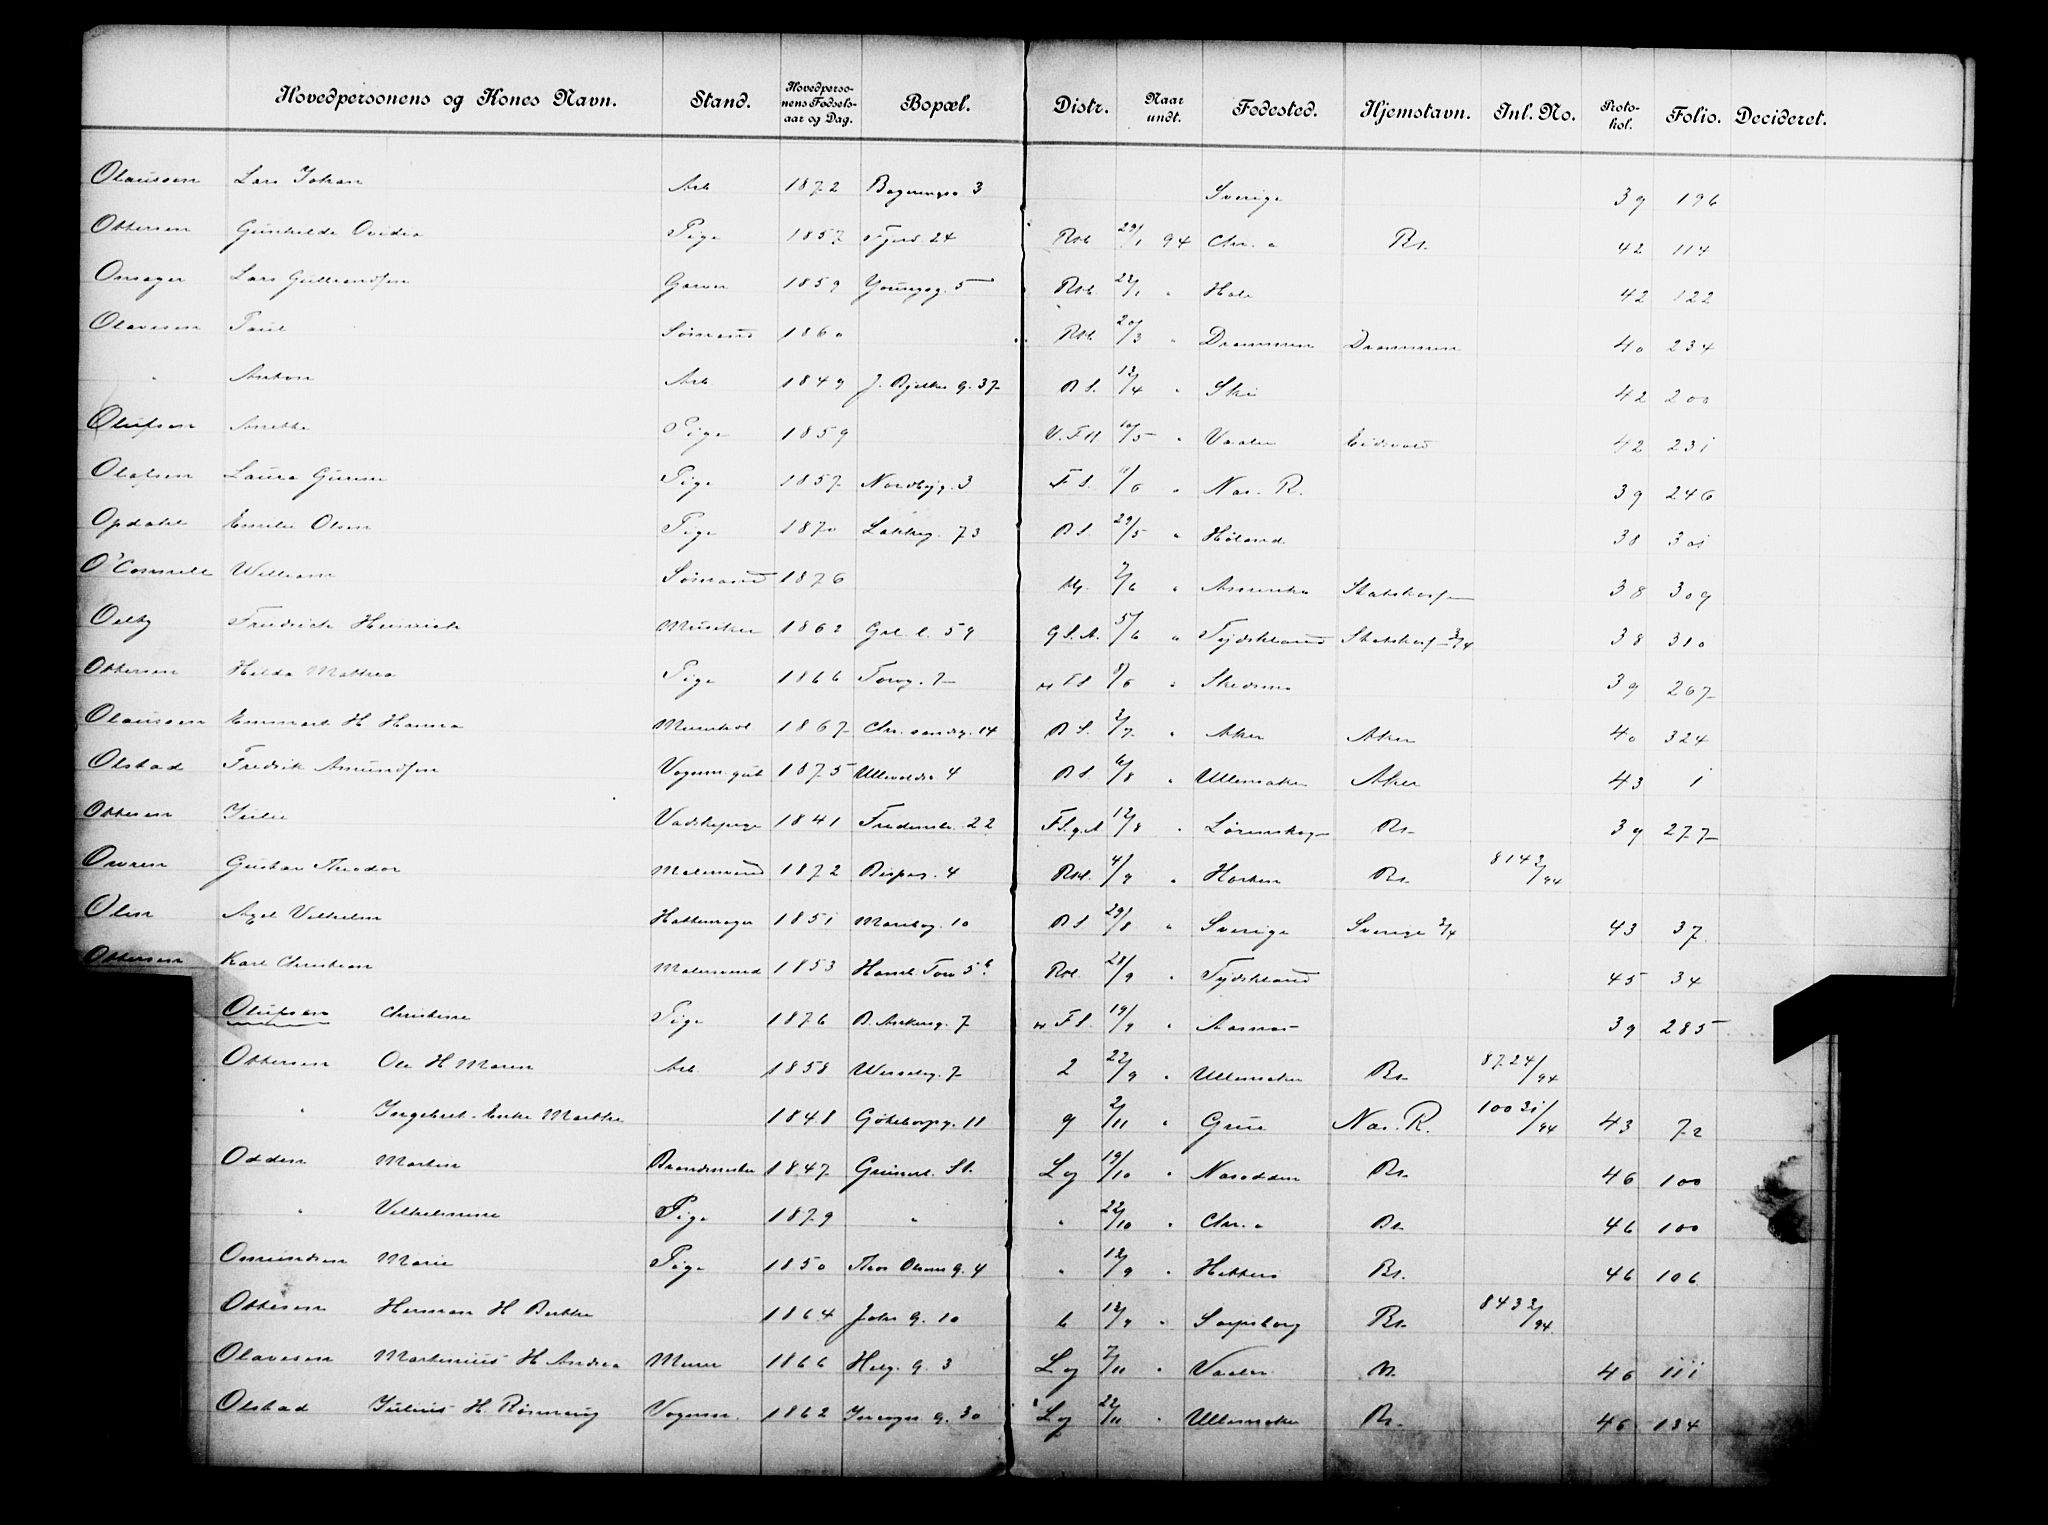 Hovedpersonens og Kones Navn. Stand. Hovedpersonens Fødselsaar og Dag. Bopæl. Distr. Naar undt. Fødested. Hjemstavn. Inl. No. Protokol. Folio. Decideret.
Olaussen Lars Johan Arb 1872 3 Sverige 39 196
Ottersen Gunhilde Ovidia Pige 1857 Fjerd. 24 Rst 29/1 94 Chr.a Bs. 42 114
Onsager Lars Gulbrandsen Garver 1859 Youngsg. 5 Rst. 22/1 " Hole 42 122
Olavesen Paul Sømand 1860 Rst. 20/3 " Drammen Drammen 40 234
" Anton Arb 1849 J. Bjelkes g. 37 B S. 12/4 " Ski 42 200
Olufsen Anette Pige 1859 V. F H 10/5 " Vaaler Eidsvold 42 231
Olafsen Laura Gurine Pige 1857 Nordbyg. 3 F S. 11/6 " Nas. R. 39 246
Opdahl Emilie Olsen Pige 1870 Lakkeg. 73 B S. 29/5 " Høland 38 301
O'Connell William Sømand 1876 My. 2/6 " Amerika Statskasse 38 309
Oelby Friedrich Heinrich Musiker 1862 Grl. l. 59 G S. A. 5/6 " Tydskland Statskass 3/4 38 310
Ottersen Hilda Mathea Pige 1866 Torvg. 7 F S 8/6 " Skedsmo 39 267
Olaussen Emmart H Hanna Murerhdl 1867 Chr. sandsg. 14 B S. 2/7 " Aker Aker 40 324
Olstad Fredrik Amundsen Vognm. gut 1875 Ullevoldsv 4 B S. 6/8 " Ullensaker Aker 43 1
Ottersen Julie Vadskepige 1841 Fredensb. 22 F S. g. A 12/8 " Lørenskog Bs. 39 277
Owren Gustav Theodor Malersvend 1872 Bispeg. 4 Rst. 4/9 " Horten Bs. 8142/94
Olin Axel Vilhelm Hattemager 1851 Maribog. 10 B S 29/8 " Sverige Sverige 3/4 43 37
Ottersen Karl Christian Malersvend 1853 Haml. Torv 5 b Rst. 28/9 " Tydskland 45 34
Olufsen Christine Pige 1876 B. Ankersg. 7 F S. 19/9 " Aasnæs 39 285
Ottersen Ole H Maren Arb. 1858 Wesselsg. 7 2 22/9 " Ullensaker Bs. 8724/94
" Ingebret. Enke Marthe 1848 Gøteborgg. 11 9 2/11 " Grue Nas. R. 10031/94 43 72
Odden Martin Brandmester 1847 Grünerl. St. Lg 19/10 " Næsodden Bs. 46 100
" Vilhelmine Pige 1879 " " 22/10 " Chr.a Bs. 46 100
Osmundsen Marie Pige 1850 Thor Olsens g. 4 " 12/9 " Hitterø Bs. 46 106
Ottesen Herman H Berthe 1864 Johs g. 10 6 12/9 " Sarpsborg Bs. 8432/94
Olavesen Martinius H Andrea Murer 1866 Helg. g. 3 Lg 7/11 " Vaaler Bs. 46 111
Olstad Julius H. Rønnaug Vognm. 1862 30 Lg 22/11 " Ullensaker Bs. 46 134